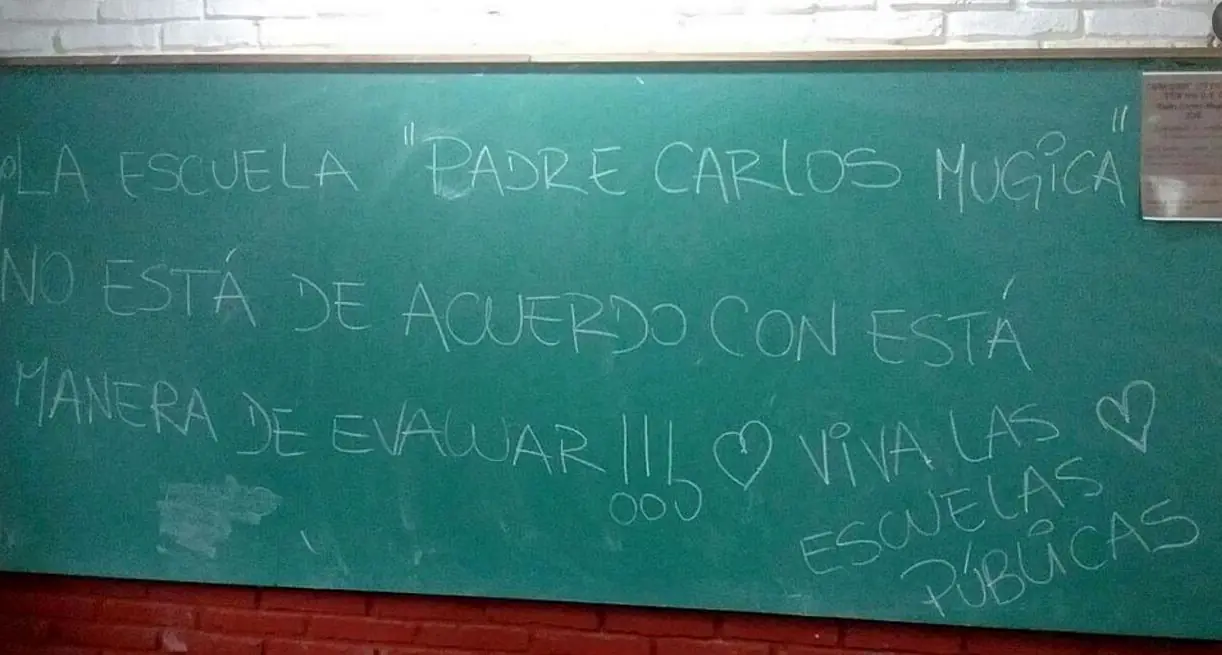 LA ESCUELA "PADRE CARLOS MUGICA"
NO ESTÁ DE ACUERDO CON ESTÁ
MANERA DE EVALUAR!!! ♡ VIVA LAS ♡
ESCUELAS
PÚBLICAS